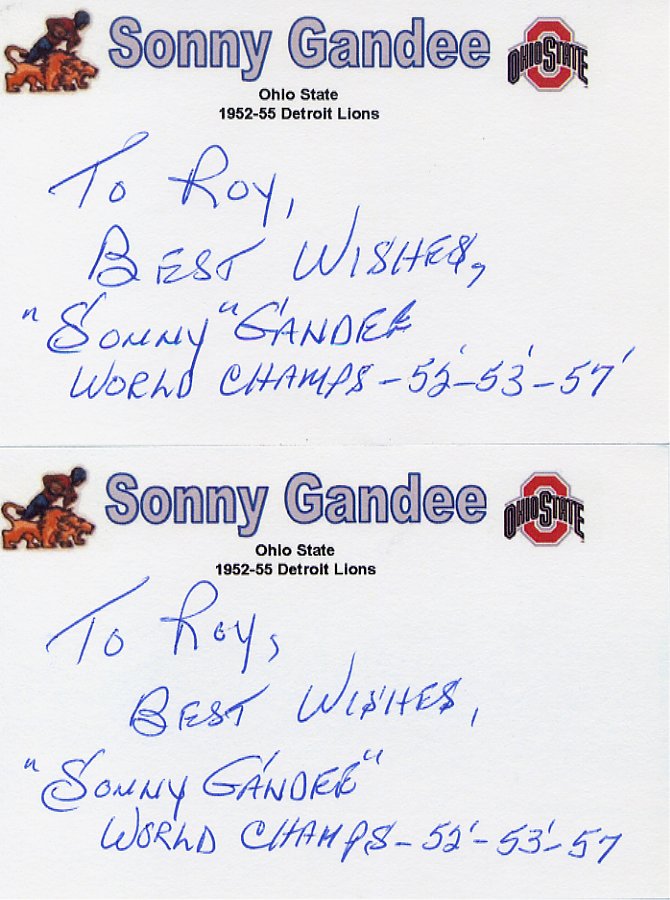 Sonny Gandee
OHIO STATE
Ohio State
1952-55 Detroit Lions
To Roy,
BEST WISHES,
"SONNY" GANDEE
WORLD CHAMPS - 52'-53'-57'
Sonny Gandee
OHIO STATE
Ohio State
1952-55 Detroit Lions
To Roy,
BEST WISHES,
"SONNY GANDEE"
WORLD CHAMPS - 52'-53'-57